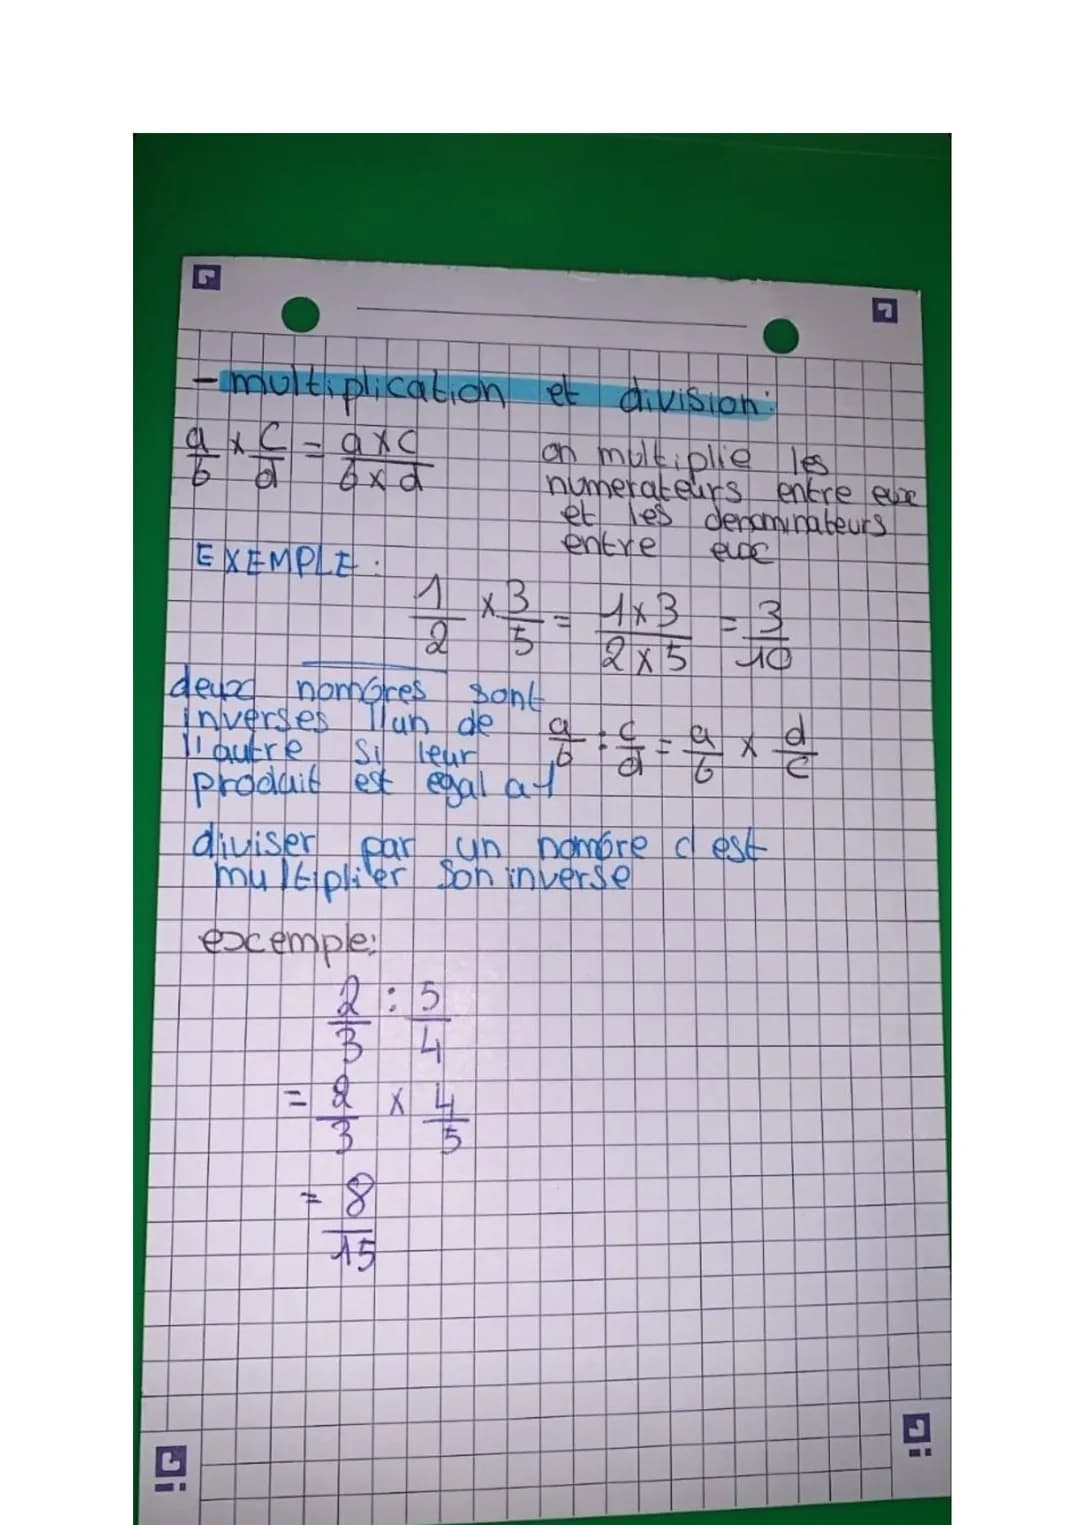 - multiplication et division:
a/b x c/d = axc/bxd
on multiplie les
numerateurs entre eux
et les denominateurs
entre eux
EXEMPLE :
1/2 x 3/5 = 1x3/2x5 = 3/10
deux nombres sont
inverses l'un de
l'autre si leur
produit est egal a 1
a/b : c/d = a/b x d/c
diviser par un nombre c'est
multiplier son inverse
excemple:
2/3 : 5/4
= 2/3 x 4/5
= 8/15